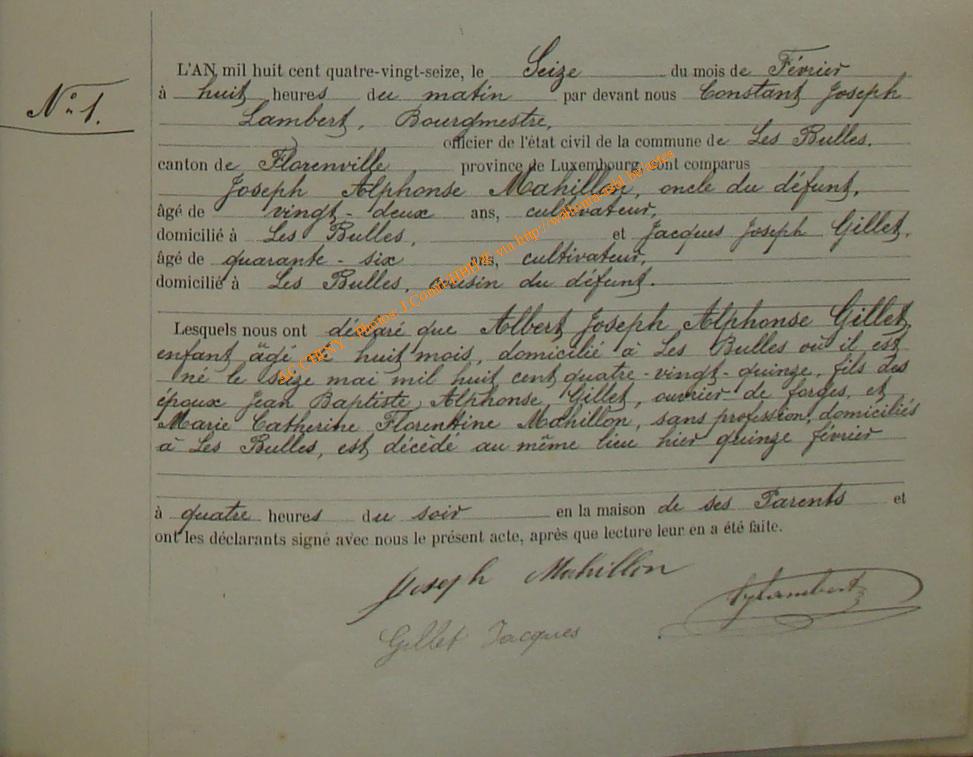 N° 1.
L'AN mil huit cent quatre-vingt-seize, le Seize du mois de Février
à huit heures du matin par devant nous Constant Joseph
Lambert, Bourgmestre,
officier de l'état civil de la commune de Les Bulles,
canton de Florenville province de Luxembourg, sont comparus
Joseph Alphonse Mahillon, oncle du défunt,
âgé de vingt-deux ans, cultivateur,
domicilié à Les Bulles, et Jacques Joseph Gillet,
âgé de quarante-six ans, cultivateur,
domicilié à Les Bulles, cousin du défunt.
Lesquels nous ont déclaré que Albert Joseph Alphonse Gillet,
enfant âgé de huit mois, domicilié à Les Bulles où il est
né le seize mai mil huit cent quatre-vingt-quinze, fils des
époux Jean Baptiste Alphonse Gillet, ouvrier de forges, et
Marie Catherine Florentine Mahillon, sans profession, domiciliés
à Les Bulles, est décédé au même lieu hier quinze février
à quatre heures du soir en la maison de ses Parents et
ont les déclarants signé avec nous le présent acte, après que lecture leur en a été faite.
Joseph Mahillon
Lambert
Gillet Jacques